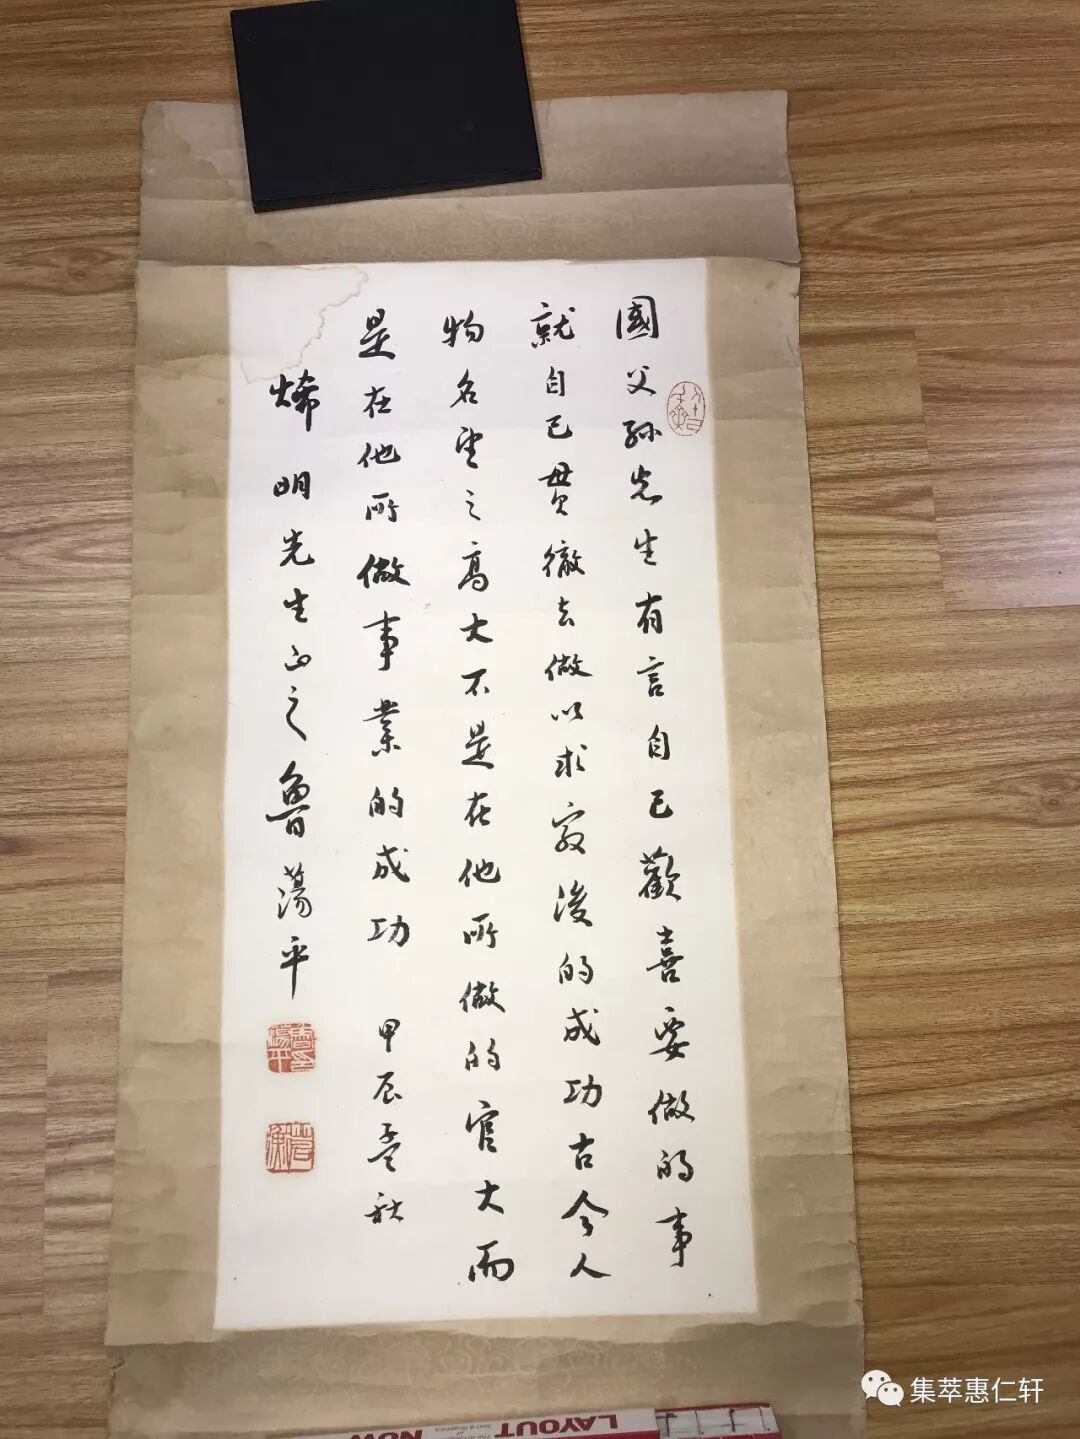 國父孫先生有言自己歡喜要做的事
就自己貫徹去做以求最後的成功古今人
物名望之高大不是在他所做的官大而
是在他所做事業的成功 甲辰孟秋
烯明先生正之 魯蕩平
魯蕩平印
集萃惠仁轩
LAYOUT
NOW